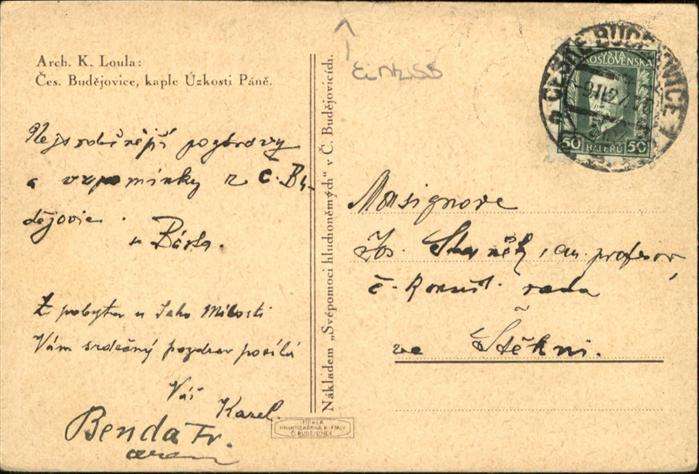 Arch. K. Loula:
Čes. Budějovice, kaple Úzkosti Páně.
Nejsrdečnější pozdravy
a vzpomínky z Č. Bu-
dějovic
Z pobytu u Jeho Milosti
Vám srdečný pozdrav posílá
Váš
Karel.
Benda Fr.
Nákladem „Svépomoci hluchoněmých“ v Č. Budějovicích.
ČESKÉ BUDĚJOVICE
ČESKOSLOVENSKÁ
50 HALÉŘŮ 50
Monsignore
Jos. em. profesor,
rada
ve Štěkni.